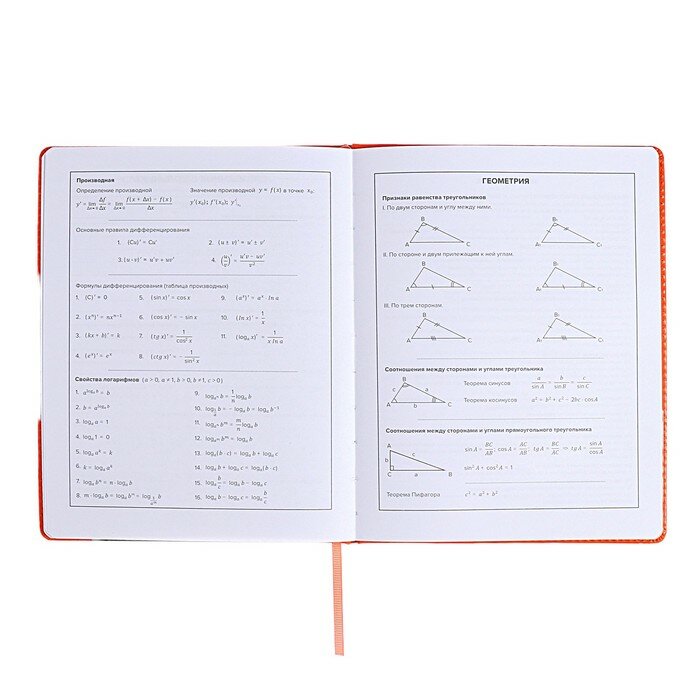 Производная
Определение производной
y' = lim Δf/Δx = lim (f(x + Δx) − f(x))/Δx
Δx→0 Δx→0
Значение производной y = f(x) в точке x₀:
y'(x₀); f'(x₀); y'|x₀
Основные правила дифференцирования
1. (Cu)' = Cu'
2. (u ± v)' = u' ± v'
3. (u·v)' = u'v + uv'
4. (u/v)' = (u'v − uv')/v²
Формулы дифференцирования (таблица производных)
1. (C)' = 0
2. (xⁿ)' = nxⁿ⁻¹
3. (kx + b)' = k
4. (eˣ)' = eˣ
5. (sin x)' = cos x
6. (cos x)' = − sin x
7. (tg x)' = 1/cos² x
8. (ctg x)' = − 1/sin² x
9. (aˣ)' = aˣ · ln a
10. (ln x)' = 1/x
11. (logₐ x)' = 1/(x ln a)
Свойства логарифмов (a > 0, a ≠ 1, b > 0, b ≠ 1, c > 0)
1. a^(logₐ b) = b
2. b = a^(logₐ b)
3. logₐ a = 1
4. logₐ 1 = 0
5. logₐ aᵏ = k
6. k = logₐ aᵏ
7. logₐ bᵐ = m · logₐ b
8. m · logₐ b = logₐ bᵐ = log
11. logₐ bᵐ = m/n logₐ b
12. logₐ bᵐ = logₐ b
13. logₐ(b · c) = logₐ b + logₐ c
14. logₐ b + logₐ c = logₐ(b · c)
15. logₐ b/c = logₐ b − logₐ c
16. logₐ b − logₐ c = logₐ b/c
ГЕОМЕТРИЯ
Признаки равенства треугольников
I. По двум сторонам и углу между ними.
B B₁
A C A₁ C₁
II. По стороне и двум прилежащим к ней углам.
B B₁
A C A₁ C₁
III. По трем сторонам.
B B₁
A C A₁ C₁
Соотношения между сторонами и углами треугольника
B
c a
A b C
Теорема синусов a/sin A = b/sin B = c/sin C
Теорема косинусов a² = b² + c² − 2bc · cos A
Соотношения между сторонами и углами прямоугольного треугольника
A
b c
C a B
sin A = BC/AB; cos A = AC/AB; tg A = BC/AC ⇒ tg A = sin A/cos A
sin² A + cos² A = 1
Теорема Пифагора c² = a² + b²